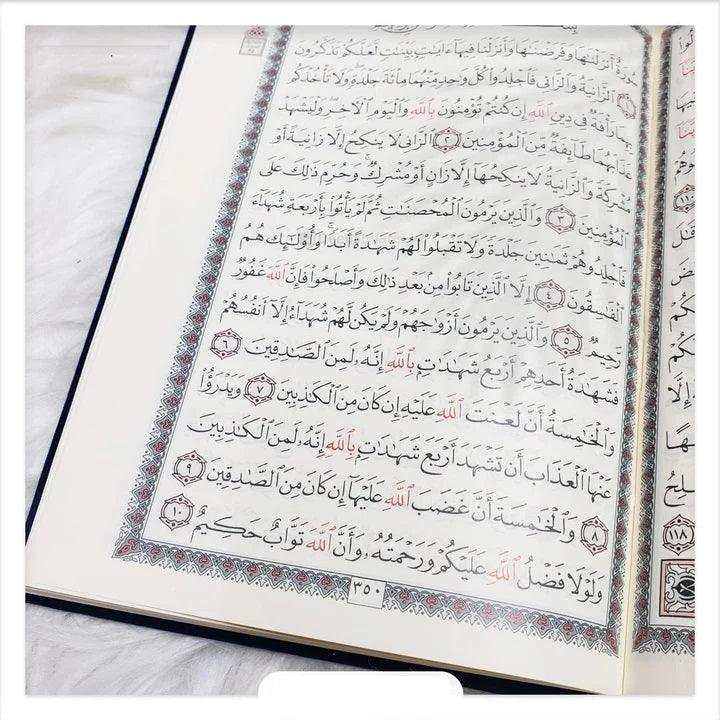 سُورَةٌ أَنزَلْنَٰهَا وَفَرَضْنَٰهَا وَأَنزَلْنَا فِيهَآ ءَايَٰتٍۭ بَيِّنَٰتٍ لَّعَلَّكُمْ تَذَكَّرُونَ
١ ٱلزَّانِيَةُ وَٱلزَّانِى فَٱجْلِدُوا۟ كُلَّ وَٰحِدٍ مِّنْهُمَا مِا۟ئَةَ جَلْدَةٍ ۖ وَلَا تَأْخُذْكُم
بِهِمَا رَأْفَةٌ فِى دِينِ ٱللَّهِ إِن كُنتُمْ تُؤْمِنُونَ بِٱللَّهِ وَٱلْيَوْمِ ٱلْءَاخِرِ ۖ وَلْيَشْهَدْ
عَذَابَهُمَا طَآئِفَةٌ مِّنَ ٱلْمُؤْمِنِينَ ٢ ٱلزَّانِى لَا يَنكِحُ إِلَّا زَانِيَةً أَوْ
مُشْرِكَةً وَٱلزَّانِيَةُ لَا يَنكِحُهَآ إِلَّا زَانٍ أَوْ مُشْرِكٌ ۚ وَحُرِّمَ ذَٰلِكَ عَلَى
ٱلْمُؤْمِنِينَ ٣ وَٱلَّذِينَ يَرْمُونَ ٱلْمُحْصَنَٰتِ ثُمَّ لَمْ يَأْتُوا۟ بِأَرْبَعَةِ شُهَدَآءَ
فَٱجْلِدُوهُمْ ثَمَٰنِينَ جَلْدَةً وَلَا تَقْبَلُوا۟ لَهُمْ شَهَٰدَةً أَبَدًا ۚ وَأُو۟لَٰٓئِكَ هُمُ
ٱلْفَٰسِقُونَ ٤ إِلَّا ٱلَّذِينَ تَابُوا۟ مِنۢ بَعْدِ ذَٰلِكَ وَأَصْلَحُوا۟ فَإِنَّ ٱللَّهَ غَفُورٌ
رَّحِيمٌ ٥ وَٱلَّذِينَ يَرْمُونَ أَزْوَٰجَهُمْ وَلَمْ يَكُن لَّهُمْ شُهَدَآءُ إِلَّآ أَنفُسُهُمْ
فَشَهَٰدَةُ أَحَدِهِمْ أَرْبَعُ شَهَٰدَٰتٍۭ بِٱللَّهِ ۙ إِنَّهُۥ لَمِنَ ٱلصَّٰدِقِينَ ٦
وَٱلْخَٰمِسَةُ أَنَّ لَعْنَتَ ٱللَّهِ عَلَيْهِ إِن كَانَ مِنَ ٱلْكَٰذِبِينَ ٧ وَيَدْرَؤُا۟
عَنْهَا ٱلْعَذَابَ أَن تَشْهَدَ أَرْبَعَ شَهَٰدَٰتٍۭ بِٱللَّهِ ۙ إِنَّهُۥ لَمِنَ ٱلْكَٰذِبِينَ
٨ وَٱلْخَٰمِسَةَ أَنَّ غَضَبَ ٱللَّهِ عَلَيْهَآ إِن كَانَ مِنَ ٱلصَّٰدِقِينَ ٩
وَلَوْلَا فَضْلُ ٱللَّهِ عَلَيْكُمْ وَرَحْمَتُهُۥ وَأَنَّ ٱللَّهَ تَوَّابٌ حَكِيمٌ ١٠
٣٥٠
١١٨